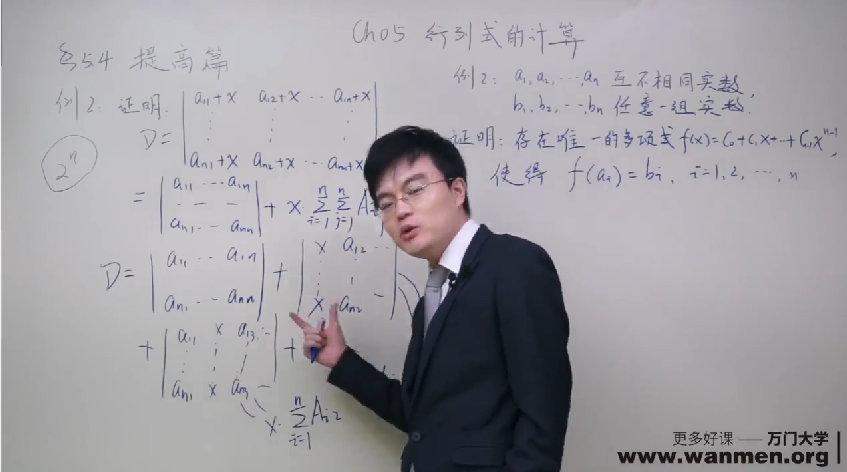 Ch05 行列式的计算
§5.4 提高篇
例2: 证明:
D= | a11+x a12+x ... a1n+x |
| an1+x an2+x ... ann+x |
2^n
= | a11 ... a1n |
| an1 ... ann | + x· Σ(i=1→n) Σ(j=1→n) A
D= | a11 ... a1n | + | x a12 ...
| an1 ... ann | x an2 -
+ | a11 x a13 ... | +
| an1 x an3 - |
x· Σ(i=1→n) Ai2
例2: a1, a2, ..., an 互不相同实数,
b1, b2, ..., bn 任意一组实数.
证明: 存在唯一的多项式 f(x)=C0+C1X+...+Cn-1X^n-1,
使得 f(ai)=bi, i=1,2, ..., n
更多好课 —— 万门大学
www.wanmen.org